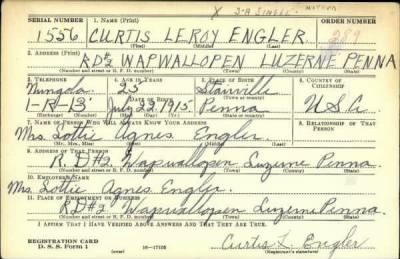 X 3-A SINGLE-
SERIAL NUMBER 1. NAME (Print) ORDER NUMBER
1556 CURTIS LEROY ENGLER 289
(First) (Middle) (Last)
2. ADDRESS (Print)
RD#2 WAPWALLOPEN LUZERNE PENNA
(Number and street or R. F. D. number) (Town) (County) (State)
3. TELEPHONE 4. AGE IN YEARS 5. PLACE OF BIRTH 6. COUNTRY OF CITIZENSHIP
25 Penna U.S.A.
1-R-13 DATE OF BIRTH
1915 (Town or county)
(State or country)
7. NAME OF PERSON WHO WILL ALWAYS KNOW YOUR ADDRESS 8. RELATIONSHIP OF THAT PERSON
Mrs. Lottie Agnes Engler.
(Mr., Mrs., Miss) (First) (Middle) (Last)
9. ADDRESS OF THAT PERSON
R.D#2 Wapwallopen Luzerne Penna.
(Number and street or R. F. D. number) (Town) (County) (State)
10. EMPLOYER'S NAME
Mrs. Lottie Agnes Engler.
11. PLACE OF EMPLOYMENT OR BUSINESS
RD#2 Wapwallopen Luzerne Penna.
(Number and street or R. F. D. number) (Town) (County) (State)
I AFFIRM THAT I HAVE VERIFIED ABOVE ANSWERS AND THAT THEY ARE TRUE.
REGISTRATION CARD
D. S. S. Form 1 (over) 16-17105 Curtis L. Engler
(Registrant's signature)